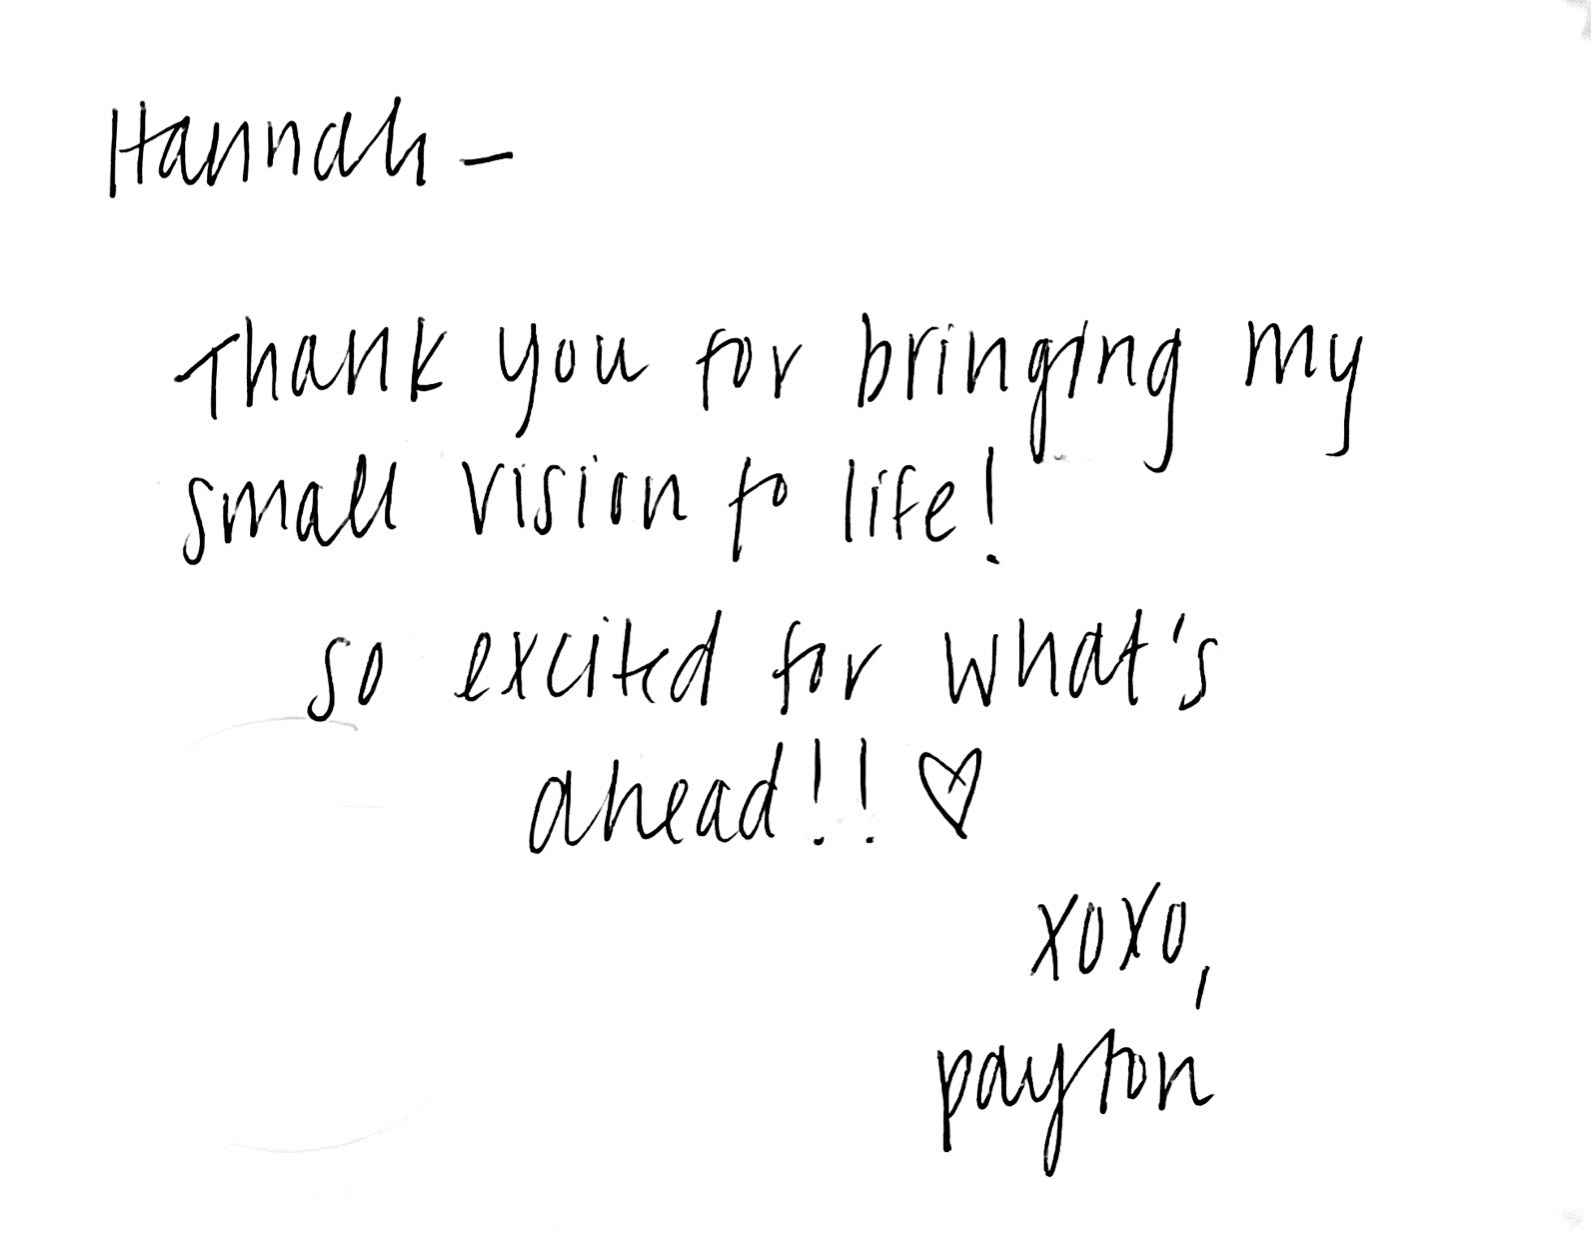 Hannah –
Thank you for bringing my
small vision to life!
so excited for what's
ahead!! ♡
xoxo,
payton